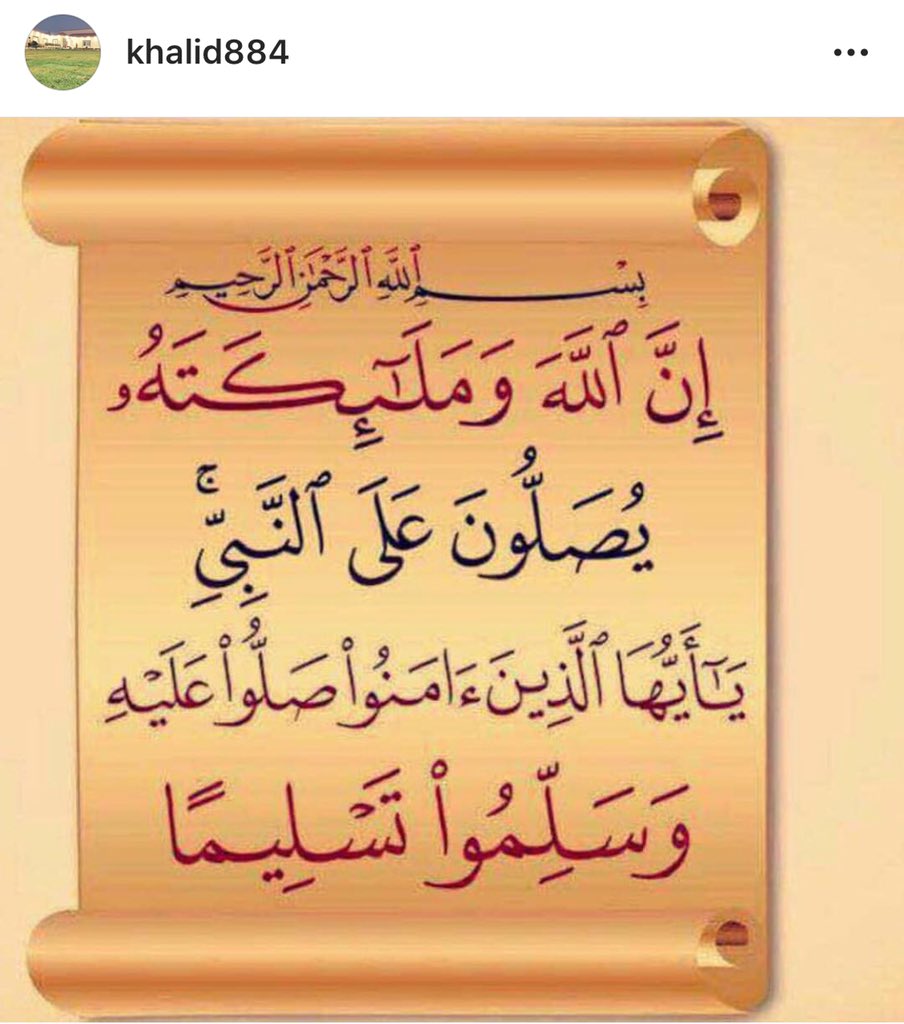 khalid884
بِسْمِ ٱللَّهِ ٱلرَّحْمَٰنِ ٱلرَّحِيمِ
إِنَّ ٱللَّهَ وَمَلَٰٓئِكَتَهُۥ
يُصَلُّونَ عَلَى ٱلنَّبِىِّ ۚ
يَٰٓأَيُّهَا ٱلَّذِينَ ءَامَنُوا۟ صَلُّوا۟ عَلَيْهِ
وَسَلِّمُوا۟ تَسْلِيمًا